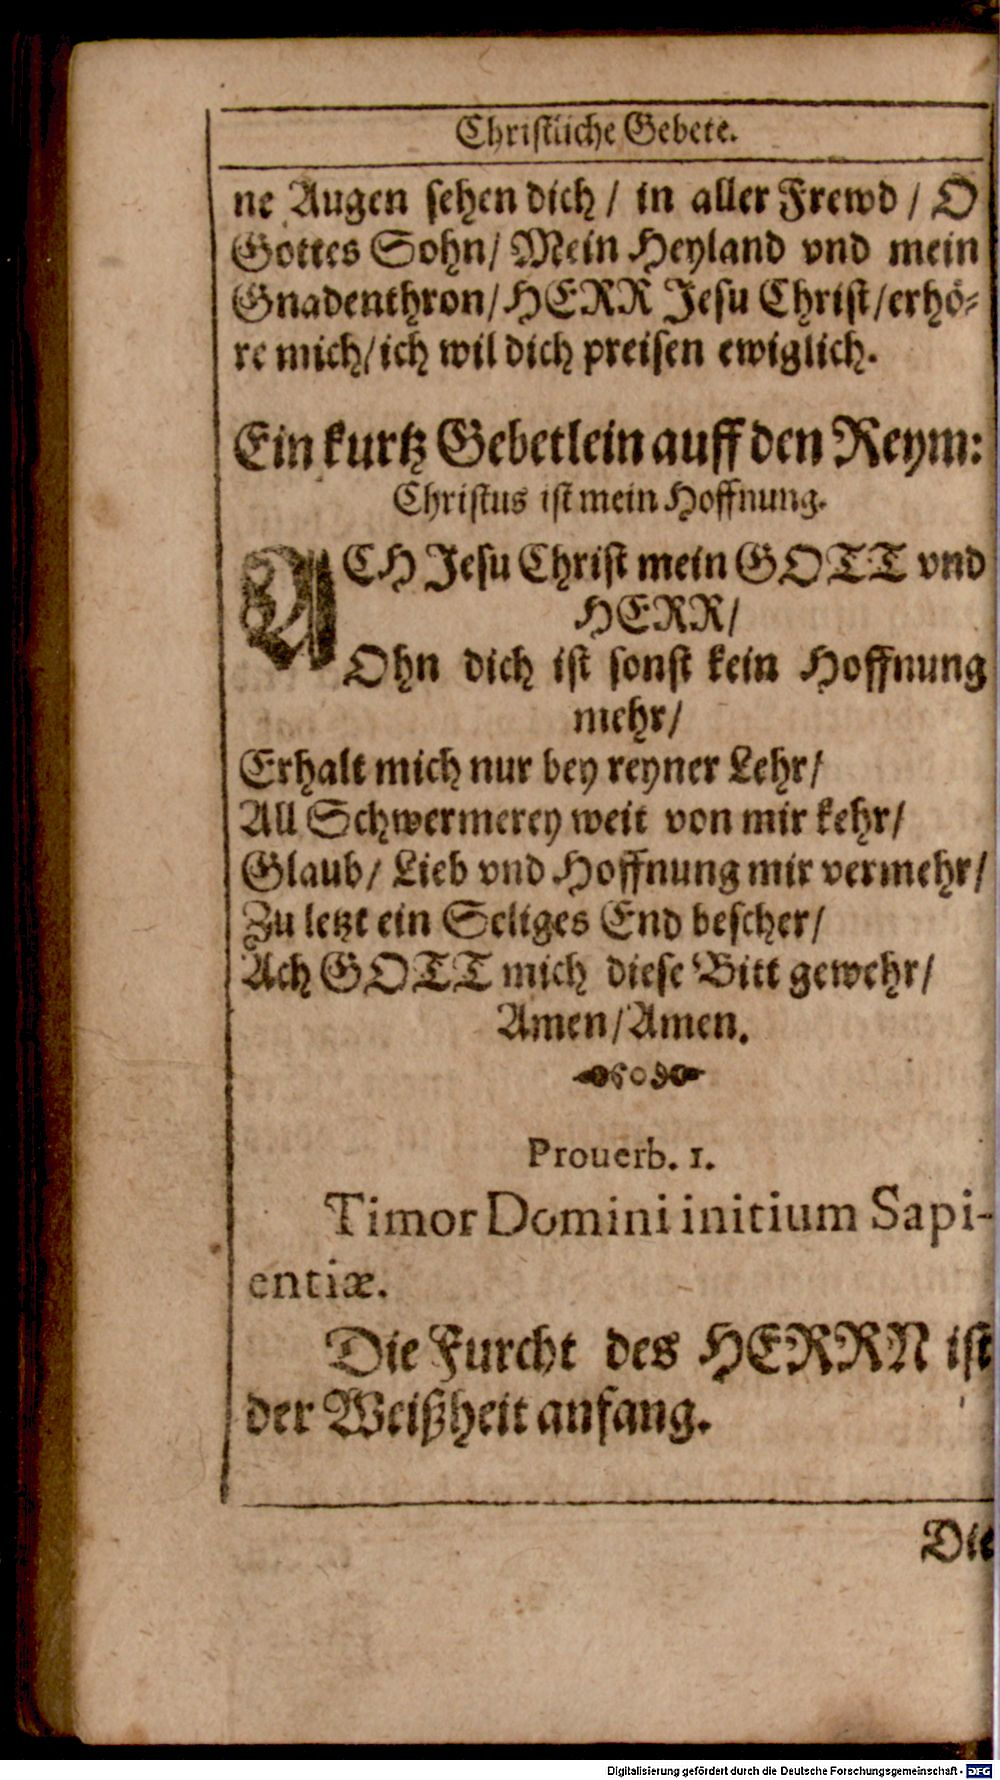 Christliche Gebete.
ne Augen sehen dich / in aller Frewd / O
Gottes Sohn / Mein Heyland vnd mein
Gnadenthron / HERR Jesu Christ / erhö⸗
re mich / ich wil dich preisen ewiglich.
Ein kurtz Gebetlein auff den Reym:
Christus ist mein Hoffnung.
ACH Jesu Christ mein GOTT vnd
HERR /
Ohn dich ist sonst kein Hoffnung
mehr /
Erhalt mich nur bey reyner Lehr /
All Schwermerey weit von mir kehr /
Glaub / Lieb vnd Hoffnung mir vermehr /
Zu letzt ein Seliges End bescher /
Ach GOTT mich diese Bitt gewehr /
Amen / Amen.
Prouerb. 1.
Timor Domini initium Sapi-
entiæ.
Die Furcht des HERRN ist
der Weißheit anfang.
Die
Digitalisierung gefördert durch die Deutsche Forschungsgemeinschaft - DFG